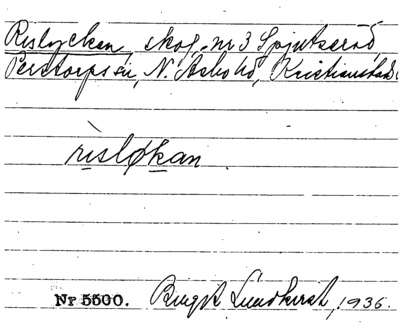 Rislyckan, skog, nr 3 Spjutseröd,
Perstorps sn, N. Åsbo hd, Kristianstads
rìsløkan
Nr 5500. Birgit Lundkvist, 1936.